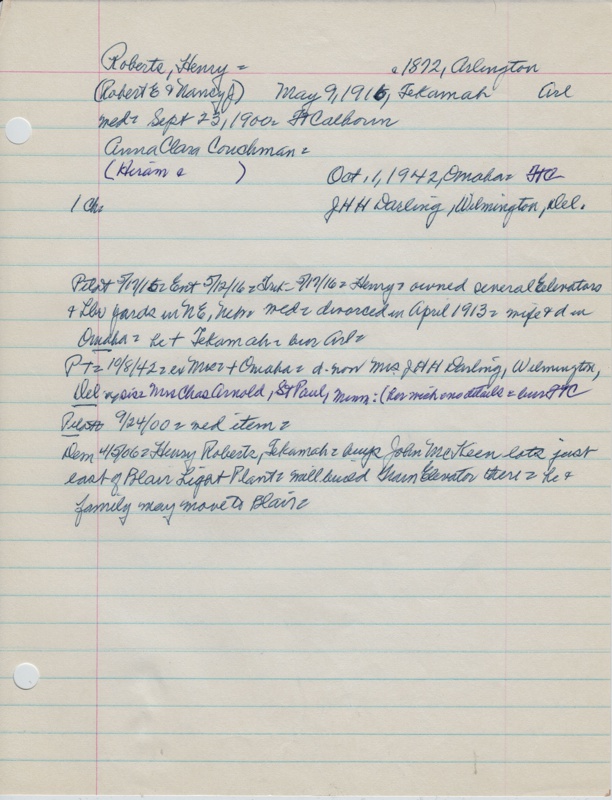 Roberts, Henry = c 1872, Arlington
(Robert E & Nancy J) May 9, 1916, Tekamah Arl
med = Sept 23, 1900 = Ft Calhoun
Anna Clara Couchman =
(Hiram & )
Oct. 1, 1942, Omaha = FTC
1 Ch: J H H Darling, Wilmington, Del.
Pilot = Ent 5/12/16 = = Henry = owned several Elevators
& Lbr yards in NE, Nebr = med = divorced in April 1913 = wife & d in
Omaha = he + Tekamah = bur Arl =
PT = 10/8/42 = + Omaha = d. now Mrs. J H H Darling, Wilmington,
Del = sis = Mrs Chas Arnold, St Paul, Minn: ( no details = bur FTC
Pilot 9/24/00 = med item =
Dem 4/5/06 = Henry Roberts, Tekamah = buys John McKeen lots just
east of Blair Light Plant = will build Grain Elevator there = he +
family may move to Blair =